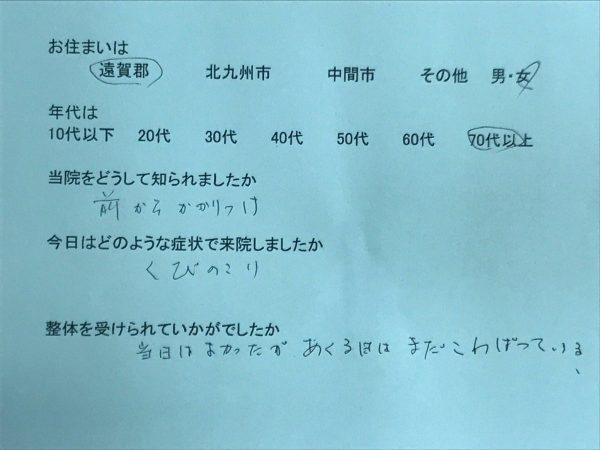 お住まいは
遠賀郡 北九州市 中間市 その他 男・女
年代は
10代以下 20代 30代 40代 50代 60代 70代以上
当院をどうして知られましたか
前からかかりつけ
今日はどのような症状で来院しましたか
くびのこり
整体を受けられていかがでしたか
当日はよかったが あくる日は まだこわばっている、